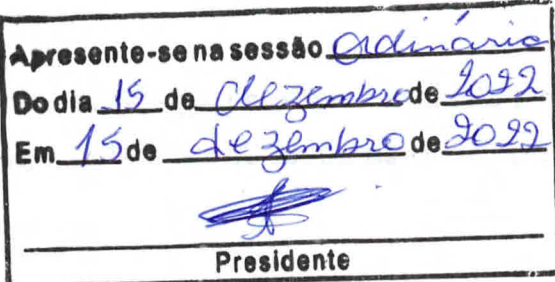 Apresente-se na sessão ordinária
Do dia 15 de dezembro de 2022
Em 15 de dezembro de 2022
Presidente